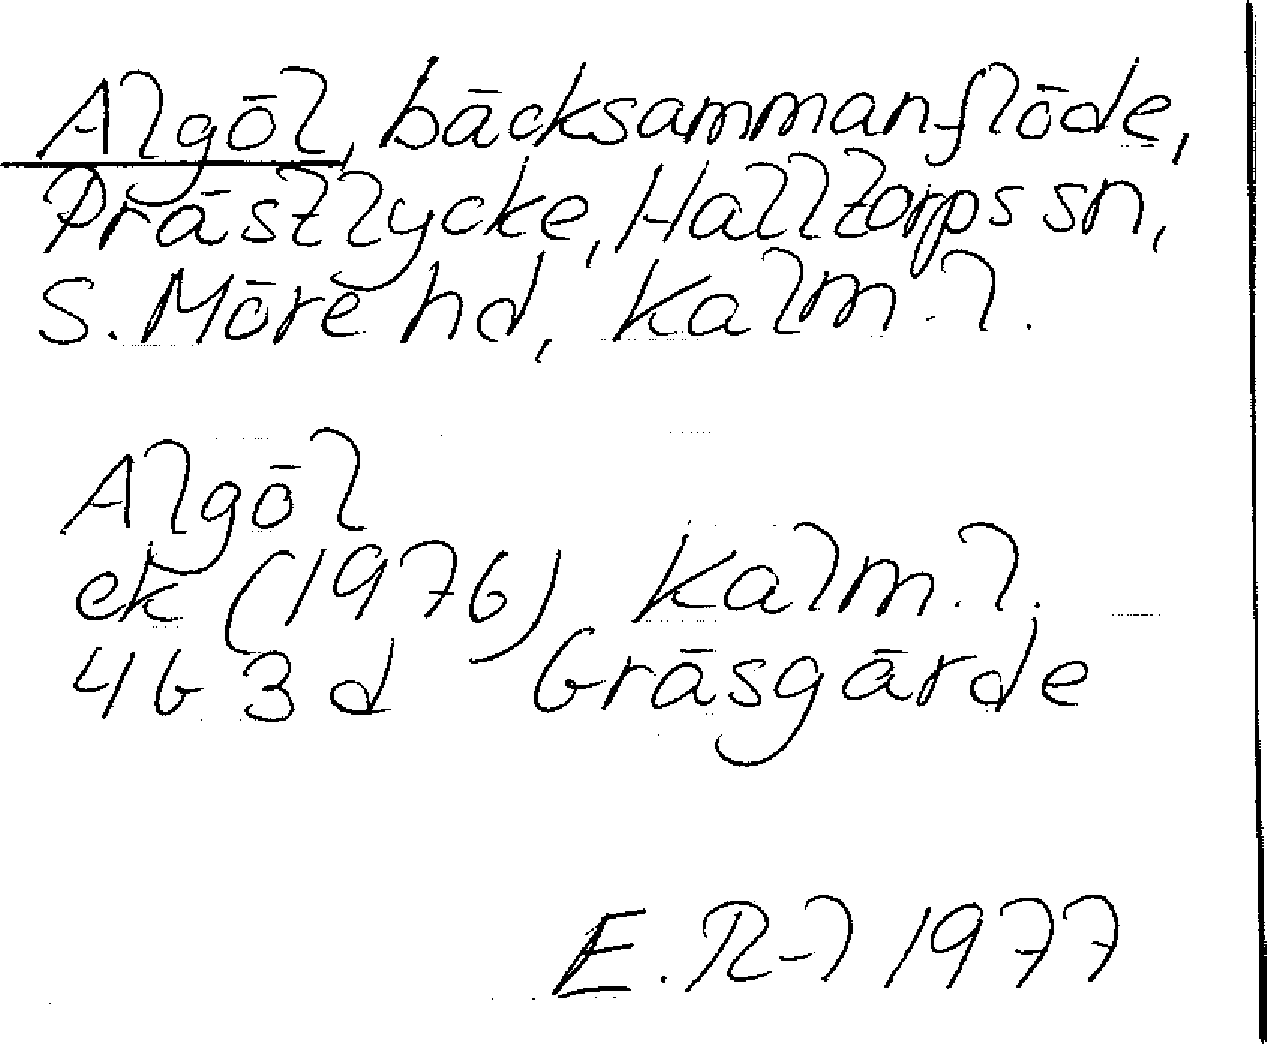 Algöl, bäcksammanflöde,
Prästlycke, Halltorps sn,
S. Möre hd, Kalm. l.
Algöl
ek (1976) Kalm. l.
4G 3d Gräsgärde
E. R-l 1977